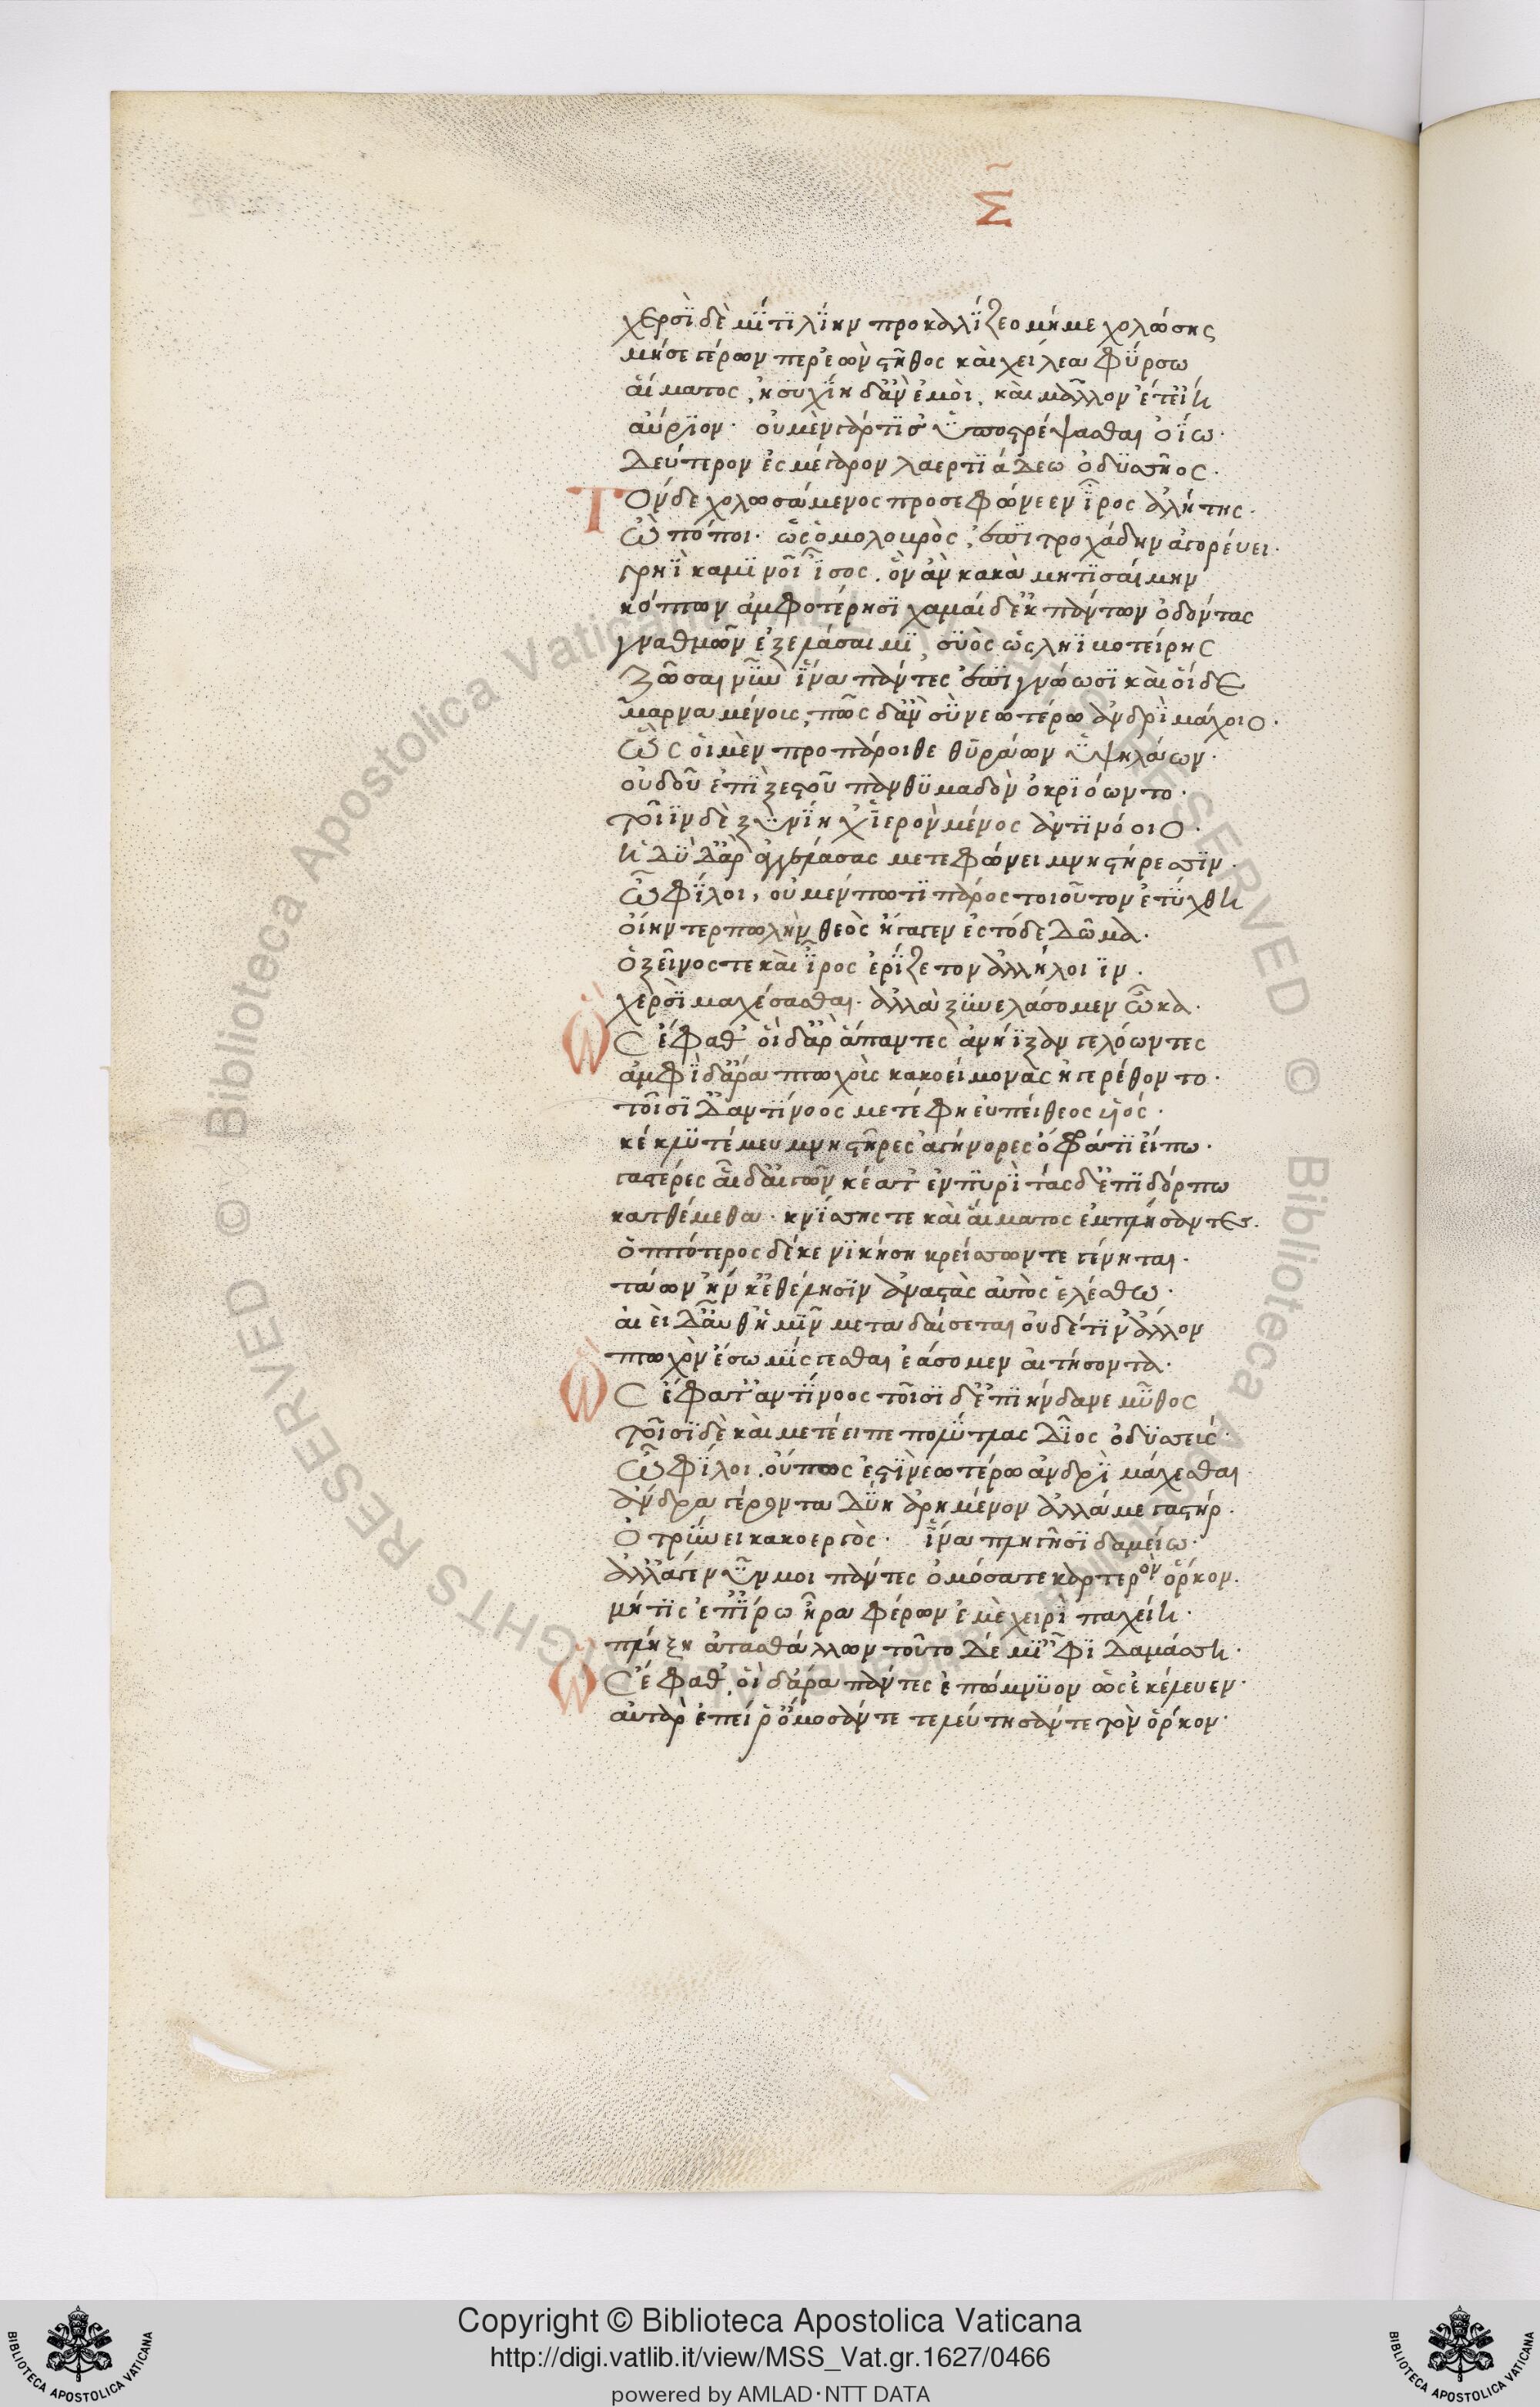 Σ
χερσὶ δὲ μή τι λίην προκαλίζεο μή με χολώσης
μή σε γέρων περ ἐὼν στῆθος καὶ χείλεα φύρσω
αἵματος, ἡσυχίη δ' ἂν ἐμοὶ, καὶ μᾶλλον ἔτ' εἴη
αὔριον· οὐ μὲν γάρ τί σ' ὑποστρέψασθαι ὀΐω·
δεύτερον ἐς μέγαρον λαερτιάδεω ὀδυσῆος·
Τὸν δὲ χολωσάμενος προσεφώνεεν ἶρος ἀλήτης·
ὦ πόποι· ὡς ὁ μολοβρὸς, ἐπιτροχάδην ἀγορεύει·
γρηῒ καμινοῖ ἶσος. ὃν ἂν κακὰ μητισαίμην
κόπτων ἀμφοτέρησι χαμαὶ δέ κ' πάντων ὀδόντας
γναθμῶν ἐξελάσαιμι συὸς ὣς ληιβοτείρης
ζῶσαι νῦν ἵνα πάντες ἐπιγνώωσι καὶ οἵδε
μαρναμένοις, πῶς δ' ἂν σὺ νεωτέρω ἀνδρὶ μάχοιο·
ὣς οἱ μὲν προπάροιθε θυράων ὑψηλάων·
οὐδοῦ ἐπὶ ξεστοῦ πανθυμαδὸν ὀκριόωντο·
τοῖιν δὲ ξυνίη χ' ἱερὸν μένος ἀντινόοιο·
ἡδὺ δ' ἄρ' ἐγγελάσας μετεφώνει μνηστήρεσσιν·
ὦ φίλοι, οὐ μέν πω τι πάρος τοιοῦτον ἐτύχθη
οἵην τερπωλὴν θεὸς ἤγαγεν ἐς τόδε δῶμα·
ὁ ξεῖνός τε καὶ ἶρος ἐρίζετον ἀλλήλοιιν·
χερσὶ μαχέσασθαι· ἀλλὰ ξυνελάσομεν ὦκα·
Ὣς ἔφαθ' οἱ δ' ἄρ' ἅπαντες ἀνήϊξαν γελόωντες
ἀμφὶ δ' ἄρα πτωχοὺς κακοείμονας ἠγερέθοντο·
τοῖσι δ' ἀντίνοος μετέφη εὐπείθεος υἱός·
κέκλυτέ μευ μνηστῆρες ἀγήνορες ὄφρά τι εἴπω·
γαστέρες αἵδ' αἰγῶν κέατ' ἐν πυρὶ τάς δ' ἐπὶ δόρπω
κατθέμεθα· κνίσης τε καὶ αἵματος ἐμπλήσαντες·
ὁππότερος δέ κε νικήση κρείσσων τε γένηται·
τάων ἥν κ' ἐθέλησιν ἀναστὰς αὐτὸς ἑλέσθω·
αἰεὶ δ' αὖθ' ἡμῖν μεταδαίσεται οὐδέ τιν' ἄλλον
πτωχὸν ἔσω μίσγεσθαι ἐάσομεν αἰτήσοντα·
Ὣς ἔφατ' ἀντίνοος τοῖσι δ' ἐπιήνδανε μῦθος
τοῖσι δὲ καὶ μετέειπε πολύτλας δῖος ὀδυσσεύς·
ὦ φίλοι. οὔπως ἐστὶ νεωτέρω ἀνδρὶ μάχεσθαι
ἄνδρα γέροντα δύη ἀρημένον ἀλλά με γαστήρ·
ὀτρύνει κακοεργὸς· ἵνα πληγῆσι δαμείω·
ἀλλ' ἄγε νῦν μοι πάντες ὀμόσατε καρτερὸν ὅρκον·
μή τις ἐπ' ἴρω ἦρα φέρων ἐμὲ χειρὶ παχείη·
πλήξη ἀτασθάλλων τοῦτο δέ μ' ἶφι δαμάσση·
Ὣς ἔφαθ', οἱ δ' ἄρα πάντες ἐπώμνυον ὡς ἐκέλευεν·
αὐτὰρ ἐπεί ῥ' ὄμοσάν τε τελεύτησάν τε τὸν ὅρκον·
© Biblioteca Apostolica Vaticana ALL RIGHTS RESERVED
Copyright © Biblioteca Apostolica Vaticana
http://digi.vatlib.it/view/MSS_Vat.gr.1627/0466
powered by AMLAD·NTT DATA
BIBLIOTECA APOSTOLICA VATICANA
BIBLIOTECA APOSTOLICA VATICANA